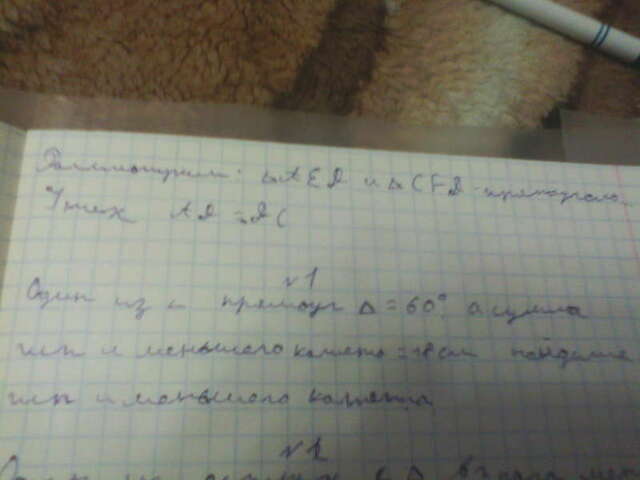 Рассмотрим: △AED и △CFD - прямоугол.
У них AD = DC
№1
Один из ∠ прямоуг △ = 60°, а сумма
гип и меньшего катета = 18 см найдите
гип и меньшего катета
№1